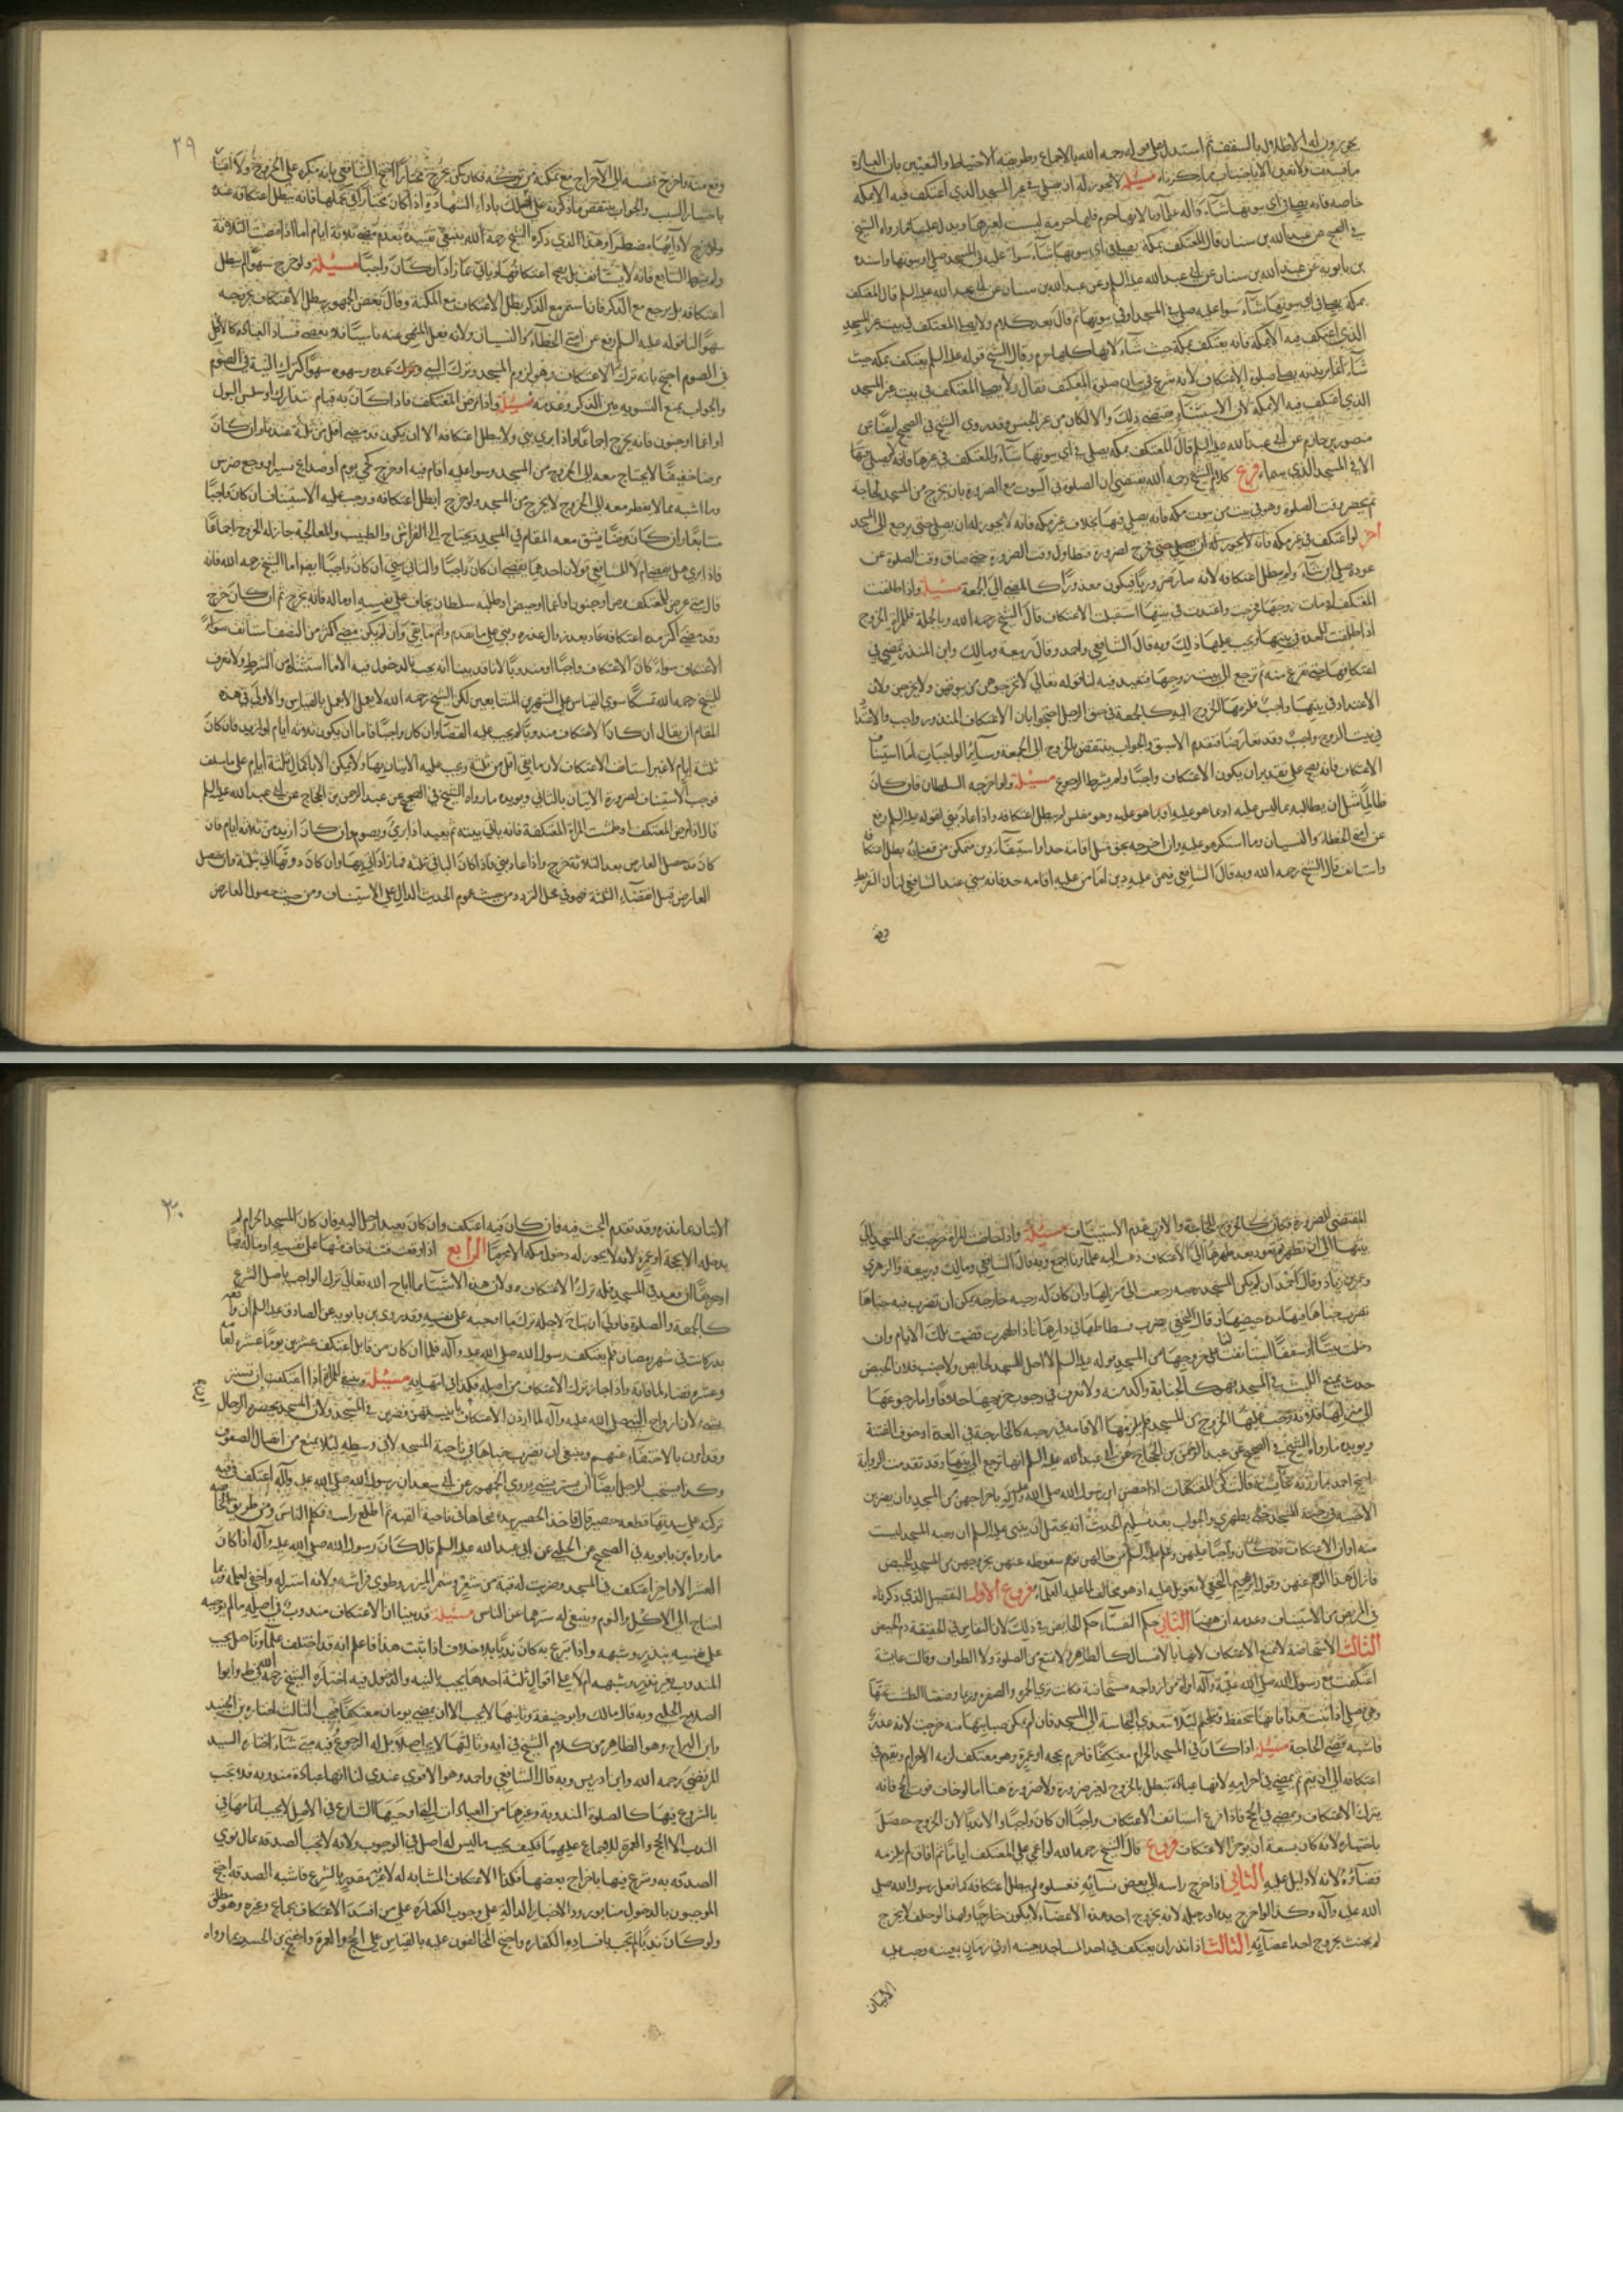 خاصة فانه يصلي في اي بيوتها شاء واليه علماؤنا لانها حرم فلها حرمة ليست لغيرها ويدل عليه ما رواه الشيخ
في الصحيح عن عبد الله بن سنان قال المعتكف بمكة يصلي في اي بيوتها شاء سواء عليه في المسجد صلى او بيوتها واسنده
بن بابويه عن عبد الله بن سنان عن ابي عبد الله عليه السلم وعن عبد الله بن سنان عن ابي عبد الله عليه السلم قال المعتكف
بمكة يصلي في اي بيوتها شاء سواء عليه صلى في المسجد او في بيوتها ثم قال بعد كلام ولا يصلي المعتكف في بيت غير المسجد
الذي اعتكف فيه الا بمكة فانه يعتكف بمكة حيث شاء لانها كلها حرم وقال الشيخ قوله عليه السلم يعتكف بمكة حيث
شاء انما يريد به يصلي صلوة الاعتكاف لانه شرع في بيان صلوة المعتكف فقال ولا يصلي المعتكف في بيت غير المسجد
الذي اعتكف فيه الا بمكة لان الاستثناء يقتضي ذلك والا لكان من غير الجنس وقد روي الشيخ في الصحيح ايضا عن
منصور بن حازم عن ابي عبد الله عليه السلم قال المعتكف بمكة يصلي في اي بيوتها شاء والمعتكف في غيرها فانه لا يصلي فيها
الا في المسجد الذي سماه فرع كلام الشيخ رحمه الله يقتضي ان الصلوة في البيوت مع الضرورة بان يخرج من المسجد لحاجة
ثم يحضر وقت الصلوة وهو في بيت من بيوت مكة فانه يصلي فيها بخلاف غير مكة فانه لا يجوز له ان يصلي حتى يرجع الى المسجد
اخر لو اعتكف في غير مكة فانه لا يجوز له ان يصلي حتى خرج لضرورة فتطاول وقت الضرورة حتى ضاق وقت الصلوة عن
عوده صلى اين شاء ولم يبطل اعتكافه لانه صار ضروريا فيكون معذورا كالمضي الى الجمعة مسئلة واذا طلقت
المعتكفة او مات زوجها فخرجت واعتدت في بيتها استقبلت الاعتكاف قال الشيخ رحمه الله وبالجملة فللمراة الخروج
اذا طلقت للعدة في بيتها ويجب عليها ذلك وبه قال الشافعي واحمد وقال ربيعة ومالك وابن المنذر تمضي في
اعتكافها حتى تفرغ منه ثم ترجع الى بيت زوجها فتعتد فيه لنا قوله تعالى لا تخرجوهن من بيوتهن ولا يخرجن ولان
الاعتداد في بيتها واجب فلزمها الخروج اليه كالجمعة في حق الرجل احتجوا بان الاعتكاف المنذور واجب والاعتداد
في بيت الزوج واجب وقد تعارضا فتقدم الاسبق والجواب ينتقض بالخروج الى الجمعة وساير الواجبات اما استيناف
الاعتكاف فانه يصح على تقدير ان يكون الاعتكاف واجبا ولم يشرط الرجوع مسئلة ولو اخرجه السلطان فان كان
ظالما مثل ان يطالبه بما ليس عليه او بما هو عليه وهو مفلس لم يبطل اعتكافه واذا عاد بنى لقوله عليه السلم رفع
عن امتي الخطاء والنسيان وما استكرهوا عليه وان اخرجه بحق مثل اقامة حد او استيفاء دين متمكن من قضائه بطل اعتكافه
واستانف قال الشيخ رحمه الله وبه قال الشافعي فيمن عليه دين اما من عليه اقامة حد فانه يبني عند الشافعي لنا ان التفريط
وقع
٢٩
وقع منه واحوج نفسه الى الاخراج مع تمكنه من تركه فكان كمن يخرج مختارا احتج الشافعي بانه مكره على الخروج ولا
باختيار السبب والجواب ينتقض ما ذكرته على اصلك باداء الشهادة اذا كان مختارا في تحملها فانه يبطل اعتكافه عنده
ولم يشترط التتابع فانه لا يستانف بل يصح اعتكافها وياتي بما زاد ان كان واجبا مسئلة ولو خرج سهوا لم يبطل
اعتكافه بل يرجع مع الذكر فان استمر مع الذكر بطل الاعتكاف مع المكنة وقال بعض الجمهور يبطل الاعتكاف بخروجه
سهوا لنا قوله عليه السلم رفع عن امتي الخطاء والنسيان ولانه فعل المنهي عنه ناسيا فلا يقتضي فساد العبادة كالاكل
في الصوم احتج بانه ترك الاعتكاف وهو لزوم المسجد وترك الشي وترك عمده وسهوه سواء كترك النية في الصوم
والجواب بمنع التسوية بين التذكر وعدمه مسئلة واذا مرض المعتكف فاذا كان به قيام متدارك او سلس البول
او اغماء او جنون فانه يخرج اجماعا واذا بري بنى ولا يبطل اعتكافه الا ان يكون قد مضى اقل من ثلثة عندنا وان كان
مرضا خفيفا لا يحتاج معه الى الخروج من المسجد وسواء عليه اقام فيه او خرج كحمى يوم او صداع يسير او وجع ضرس
وما اشبه مما لا يفطر معه الى الخروج لا يخرج من المسجد ولو خرج ابطل اعتكافه ووجب عليه الاستيناف ان كان واجبا
متتابعا وان كان مرضا يشق معه المقام في المسجد ويحتاج الى الفراش والطبيب والمعالجة جاز له الخروج اجماعا
فاذا بري هل يقضي ام لا للشافعي قولان احدهما يقضي ان كان واجبا والثاني يبني ان كان واجبا ايضا اما الشيخ رحمه الله فانه
قال متى عرض للمعتكف مرض او جنون او اغماء او حيض او طلبه سلطان يخاف على نفسه او ماله فانه يخرج ثم ان كان خرج
وقد مضى اكثر مدة اعتكافه عاد بعد زوال عذره وبنى على ما تقدم واتم ما بقي وان لم يكن مضى اكثر من النصف استانف سواء
الاعتكاف سواء كان الاعتكاف واجبا او مندوبا لانا قد بينا انه يجب بالدخول فيه الا ما استثناه من الشرط ولا نعرف
للشيخ رحمه الله تمسكا سوى القياس على الشهرين المتتابعين لكن الشيخ رحمه الله لا يعمل بالقياس والاولى في هذه
المقام ان يقال ان كان الاعتكاف مندوبا لم يجب عليه القضاء وان كان واجبا فاما ان يكون ثلاثة ايام او ازيد فان كان
ثلثة ايام لا غير استانف الاعتكاف لان ما بقي اقل من ثلثة وجب عليه الاتيان بها ولا يمكن الا باكمال ثلثة ايام على ما سلف
فوجب الاستيناف لضرورة الاتيان بالثاني ويويده ما رواه الشيخ في الصحيح عن عبد الرحمن بن الحجاج عن ابي عبد الله عليه السلم
قال اذا مرض المعتكف او طمثت المراة المعتكفة فانه ياتي بيته ثم يعيد اذا بري ويصوم وان كان ازيد من ثلاثة ايام فان
كان قد حصل العارض بعد الثلاثة خرج واذا عاد بنى فاذا كان الباقي ثلثة فما زاد اتى بها وان كان دونها اتى ثلثة وان حصل
العارض قبل انقضاء الثلثة فهو في محل التردد من حيث عموم الحديث الدال على الاستيناف ومن حيث حصول العارض
المقتضي للضرورة فكان كالخروج للحاجة والاقرب عدم الاستيناف مسئلة واذا حاضت المراة خرجت من المسجد الى
بيتها الى ان تطهر ثم تعود بعد طهرها الى الاعتكاف ذهب اليه علماؤنا اجمع وبه قال الشافعي ومالك وربيعة والزهري
وعمرو بن دينار وقال احمد ان لم يكن للمسجد رحبة رجعت الى منزلها وان كان له رحبة خارجة يمكن ان تضرب فيه خباها
تضرب خباها فيها مدة حيضها وقال النخعي تضرب فسطاطها في دارها فاذا طهرت قضت تلك الايام وان
دخلت بيتا او سقفا استانفت لنا على خروجها من المسجد قوله عليه السلم لا احل المسجد لحايض ولا جنب ولان الحيض
حدث يمنع اللبث في المسجد فهو كالجنابة واكد منه ولا نعرف في وجوب خروجها خلافا واما رجوعها
الى منزلها فلانه وجب عليها الخروج من المسجد فلم يلزمها الاقامة في رحبة كالخارجة في العدة او خوف الفتنة
ويويده ما رواه الشيخ في الصحيح عن عبد الرحمن بن الحجاج عن ابي عبد الله عليه السلم انها ترجع الى بيتها وقد تقدمت الرواية
احتج احمد بما رواه عن عايشة قالت كن المعتكفات اذا حضن امر رسول الله صلى الله عليه واله باخراجهن من المسجد وان يضربن
الاخبية في رحبة المسجد حتى يطهرن والجواب بعد تسليم الحديث انه يحتمل ان يبني عليه السلم ان رحبة المسجد ليست
منه او ان الاعتكاف قد كان واجبا عليهن وعلم عليه السلم من حالهن توهم سقوطه عنهن بخروجهن من المسجد للحيض
فازال هذا الوهم عنهن وقول ابرهيم النخعي لا تعويل عليه اذ هو مخالف لما عليه العلماء فروع الاول التفصيل الذي ذكرناه
في المريض من الاستيناف وعدمه آت هيهنا الثاني حكم النفساء حكم الحايض في ذلك لان النفاس في الحقيقة دم الحيض
الثالث الاستحاضة لا تمنع الاعتكاف لانها بالاغتسال كالطاهر لا تمنع من الصلوة ولا الطواف وقالت عايشة
اعتكفت مع رسول الله صلى الله عليه واله امراة من ازواجه مستحاضة فكانت ترى الحمرة والصفرة وربما وضعنا الطست تحتها
وهي تصلي اذا ثبت هذا فانها تتحفظ وتتلجم لئلا تتعدى النجاسة الى المسجد فان لم يمكن صيانتها منه خرجت لانه عذر
فاشبه قضاء الحاجة مسئلة اذا كان في المسجد الحرام معتكفا فاحرم بحجة او عمرة وهو معتكف لزمه الاحرام ويقيم في
اعتكافه الى ان يتم ثم يمضي في احرامه لانها عبادة تبطل بالخروج لغير ضرورة ولا ضرورة هنا اما لو خاف فوت الحج فانه
يترك الاعتكاف ويمضي في الحج فاذا فرغ استانف الاعتكاف واجبا ان كان واجبا والا ندبا لان الخروج حصل
باختياره لانه كان يسعه ان يوخر الاعتكاف فروع قال الشيخ رحمه الله لو اغمي على المعتكف اياما ثم افاق لم يلزمه
قضاؤه لانه لا دليل عليه الثاني اذا اخرج راسه الى بعض نسائه فغسلوه لم يبطل اعتكافه كما فعل رسول الله صلى
الله عليه وآله وكذا لو اخرج يده او رجله لانه بخروج احد هذه الاعضاء لا يكون خارجا ولهذا لو حلف لا يخرج
لم يحنث بخروج احد اعضائه الثالث اذا نذر ان يعتكف في احد المساجد بعينه او في زمان بعينه وجب عليه
الاتيان
٣٠
الاتيان بما نذره وقد تقدم البحث فيه فان كان فيه اعتكف وان كان بعيدا رحل اليه فان كان المسجد الحرام لم
يدخله الا بحجة او عمرة لانه لا يجوز له دخول مكة الا محرما الرابع اذا وقعت فتنة خاف منها على نفسه او ماله نهبا
او حريقا ان قعد في المسجد فله ترك الاعتكاف ولان هذه الاشياء مما اباح الله تعالى ترك الواجب باصل الشرع
كالجمعة والصلوة فاولى ان يباح لاجله ترك ما اوجبه على نفسه وقد روى بن بابويه عن الصادق عليه السلم ان وقعة
بدر كانت في شهر رمضان فلم يعتكف رسول الله صلى الله عليه وآله فلما ان كان من قابل اعتكف عشرين يوما عشرة لعامه
وعشرة قضاء لما فاته واذا جاز ترك الاعتكاف من اصله فكذا في انتهائه مسئلة وينبغي للمراة اذا اعتكفت ان تستتر
بشي لان ازواج النبي صلى الله عليه وآله لما اردن الاعتكاف امر بابنيتهن فضربن في المسجد ولان المسجد يحضره الرجال
وقد امرن بالاختفاء عنهم وينبغي ان تضرب خباها في ناحية المسجد لا في وسطه لئلا يمنع من اتصال الصفوف
وكذا يستحب للرجل ايضا ان يستتر بشي يروي الجمهور عن ابي سعيد ان رسول الله صلى الله عليه وآله اعتكف في قبة
تركية على سدتها قطعة حصير قال فاخذ الحصير بيده فنحاها في ناحية القبة ثم اطلع راسه فكلم الناس ومن طريق الخاصة
ما رواه بن بابويه في الصحيح عن الحلبي عن ابي عبد الله عليه السلم قال كان رسول الله صلى الله عليه وآله اذا كان
العشر الاواخر اعتكف في المسجد وضربت له قبة من شعر وشمر الميزر وطوى فراشه ولانه استر له واخفى لعمله وربما
احتاج الى الاكل والنوم وينبغي له سترهما عن الناس مسئلة قد بينا ان الاعتكاف مندوب في اصله ما لم يوجبه
على نفسه بنذر وشبهه واذا تبرع به كان ندبا بلا خلاف اذا ثبت هذا فاعلم انه قد اختلف علماؤنا هل يجب
المندوب بغير نذر وشبهه ام لا على اقوال ثلثة احدها يجب بالنية والدخول فيه اختاره الشيخ رحمه الله في ط وابو
الصلاح الحلبي وبه قال مالك وابو حنيفة وثانيها لا يجب الا ان يمضي يومان معتكفا فيجب الثالث اختاره بن الجنيد
وابن البراج وهو الظاهر من كلام الشيخ في ية وثالثها لا يجب اصلا بل له الرجوع فيه متى شاء اختاره السيد
المرتضى رحمه الله وابن ادريس وبه قال الشافعي واحمد وهو الاقوى عندي لنا انها عبادة مندوبة فلا تجب
بالشروع فيها كالصلوة المندوبة وغيرها من العبادات التي اوجبها الشارع في الاصل لا يجب اتمامها في
الندب الا الحج والعمرة للاجماع عليهما فكيف يجب ما ليس له اصل في الوجوب ولانه لا تجب الصدقة بمال نوى
الصدقة به وشرع فيها باخراج بعضها فكذا الاعتكاف المشابه له لانه غير مقدر بالشرع فاشبه الصدقة احتج
الموجبون بالدخول مما بورود الاخبار الدالة على وجوب الكفارة على من افسد الاعتكاف بجماع وغيره وهو مطلق
ولو كان ندبا لم تجب بافساده الكفارة واحتج المخالفون عليه بالقياس على الحج والعمرة واحتج بن الجنيد بما رواه